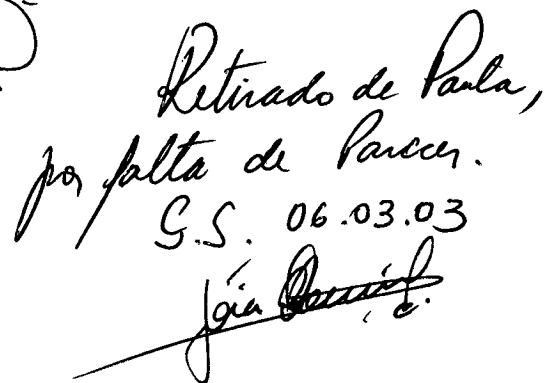 Retirado de Pauta,
por falta de Parecer.
G.S. 06.03.03